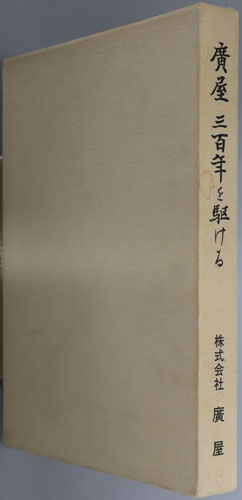 廣屋 三百年を駆ける
株式会社 廣屋